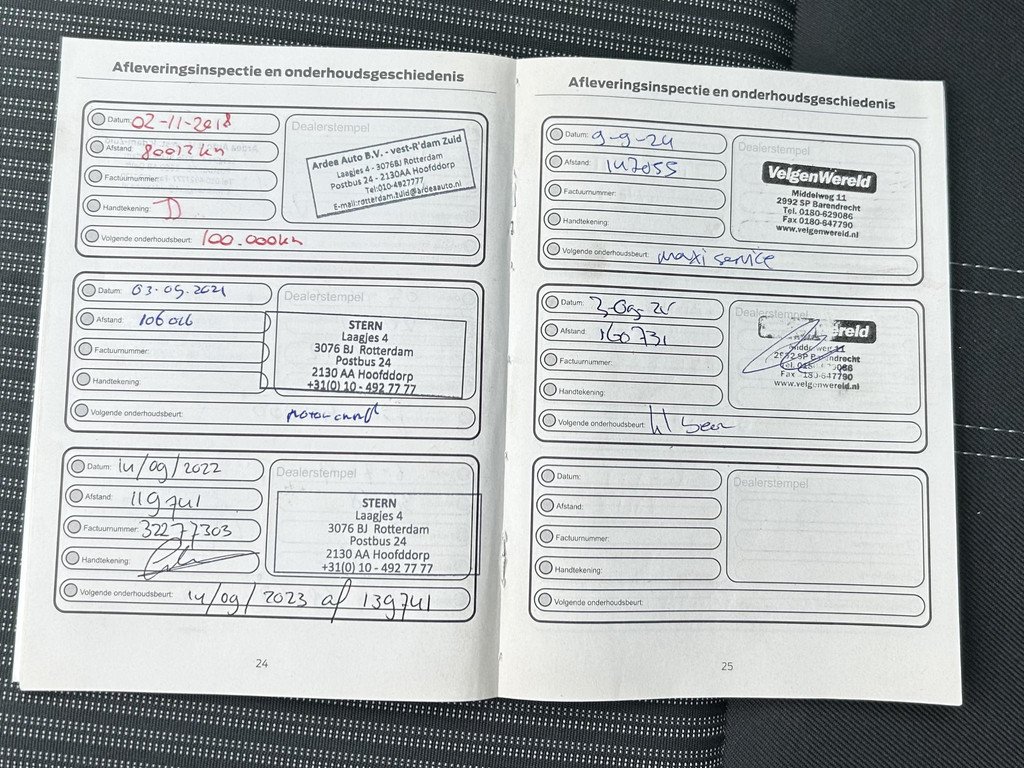 Afleveringsinspectie en onderhoudsgeschiedenis
Datum: 02-11-2018
Afstand:
Factuurnummer:
Handtekening:
Volgende onderhoudsbeurt: 100.000km
Dealerstempel
Ardea Auto B.V. - vest-R'dam Zuid
Laagjes 4 - 3076BJ Rotterdam
Postbus 24 - 2130AA Hoofddorp
Tel:010-4927777
E-mail:rotterdam.zuid@ardeaauto.nl
Datum: 03.09.2021
Afstand:
Factuurnummer:
Handtekening:
Volgende onderhoudsbeurt:
Dealerstempel
STERN
Laagjes 4
3076 BJ Rotterdam
Postbus 24
2130 AA Hoofddorp
+31(0) 10 - 492 77 77
Datum: 14/09/2022
Afstand: 119741
Factuurnummer: 32277303
Handtekening:
Volgende onderhoudsbeurt: 14/09/2023 of 139741
Dealerstempel
STERN
Laagjes 4
3076 BJ Rotterdam
Postbus 24
2130 AA Hoofddorp
+31(0) 10 - 492 77 77
24
Afleveringsinspectie en onderhoudsgeschiedenis
Datum: 9-9-24
Afstand: 147055
Factuurnummer:
Handtekening:
Volgende onderhoudsbeurt: maxi service
Dealerstempel
VelgenWereld
Middelweg 11
2992 SP Barendrecht
Tel. 0180-629086
Fax 0180-647790
www.velgenwereld.nl
Datum:
Afstand: 160731
Factuurnummer:
Handtekening:
Volgende onderhoudsbeurt:
Dealerstempel
ereld
Middelweg 11
2992 SP Barendrecht
Fax 0180-647790
www.velgenwereld.nl
Datum:
Afstand:
Factuurnummer:
Handtekening:
Volgende onderhoudsbeurt:
Dealerstempel
25